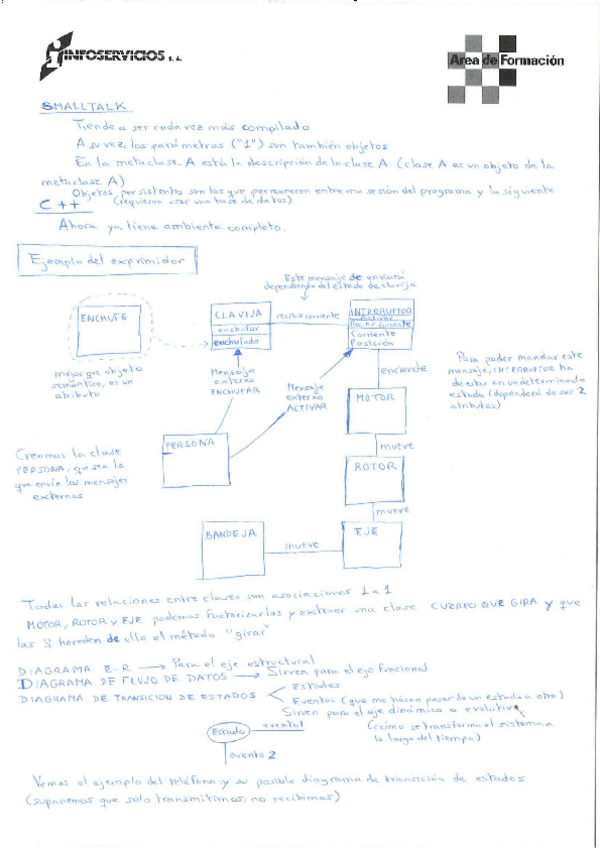 INFOSERVICIOS S.L.
Area de Formación
SMALLTALK
Tiende a ser cada vez más compilado
A su vez, los parámetros ("1") son también objetos
En la metaclase A está la descripción de la clase A (clase A es un objeto de la
metaclase A)
Objetos persistentes son los que permanecen entre una sesión del programa y la siguiente
(requieren usar una base de datos)
C++
Ahora ya tiene ambiente completo.
Ejemplo del exprimidor
Este mensaje se enviará
dependiendo del estado de clavija
ENCHUFE
CLAVIJA
enchufar
enchufado
recibir corriente
INTERRUPTOR
Activar
Corriente
Posición
mejor que objeto
semántico, es un
atributo
Mensaje
externo
ENCHUFAR
Mensaje
externo
ACTIVAR
enciende
Para poder mandar este
mensaje, INTERRUPTOR ha
de estar en un determinado
estado (dependerá de sus 2
atributos)
MOTOR
mueve
PERSONA
Creamos la clase
PERSONA, que sea la
que envíe los mensajes
externos
ROTOR
mueve
BANDEJA
mueve
EJE
Todas las relaciones entre clases son asociaciones 1 a 1
MOTOR, ROTOR y EJE podemos factorizarlas y extraer una clase CUERPO QUE GIRA y que
las 3 hereden de ella el método "girar"
DIAGRAMA E-R → Para el eje estructural
DIAGRAMA DE FLUJO DE DATOS → Sirven para el eje funcional
DIAGRAMA DE TRANSICION DE ESTADOS
Estados
Eventos (que me hacen pasar de un estado a otro)
Sirven para el eje dinámico o evolutivo
(cómo se transforma el sistema a
lo largo del tiempo)
Estado
evento 1
evento 2
Vemos el ejemplo del teléfono y su posible diagrama de transición de estados
(suponemos que sólo transmitimos, no recibimos)